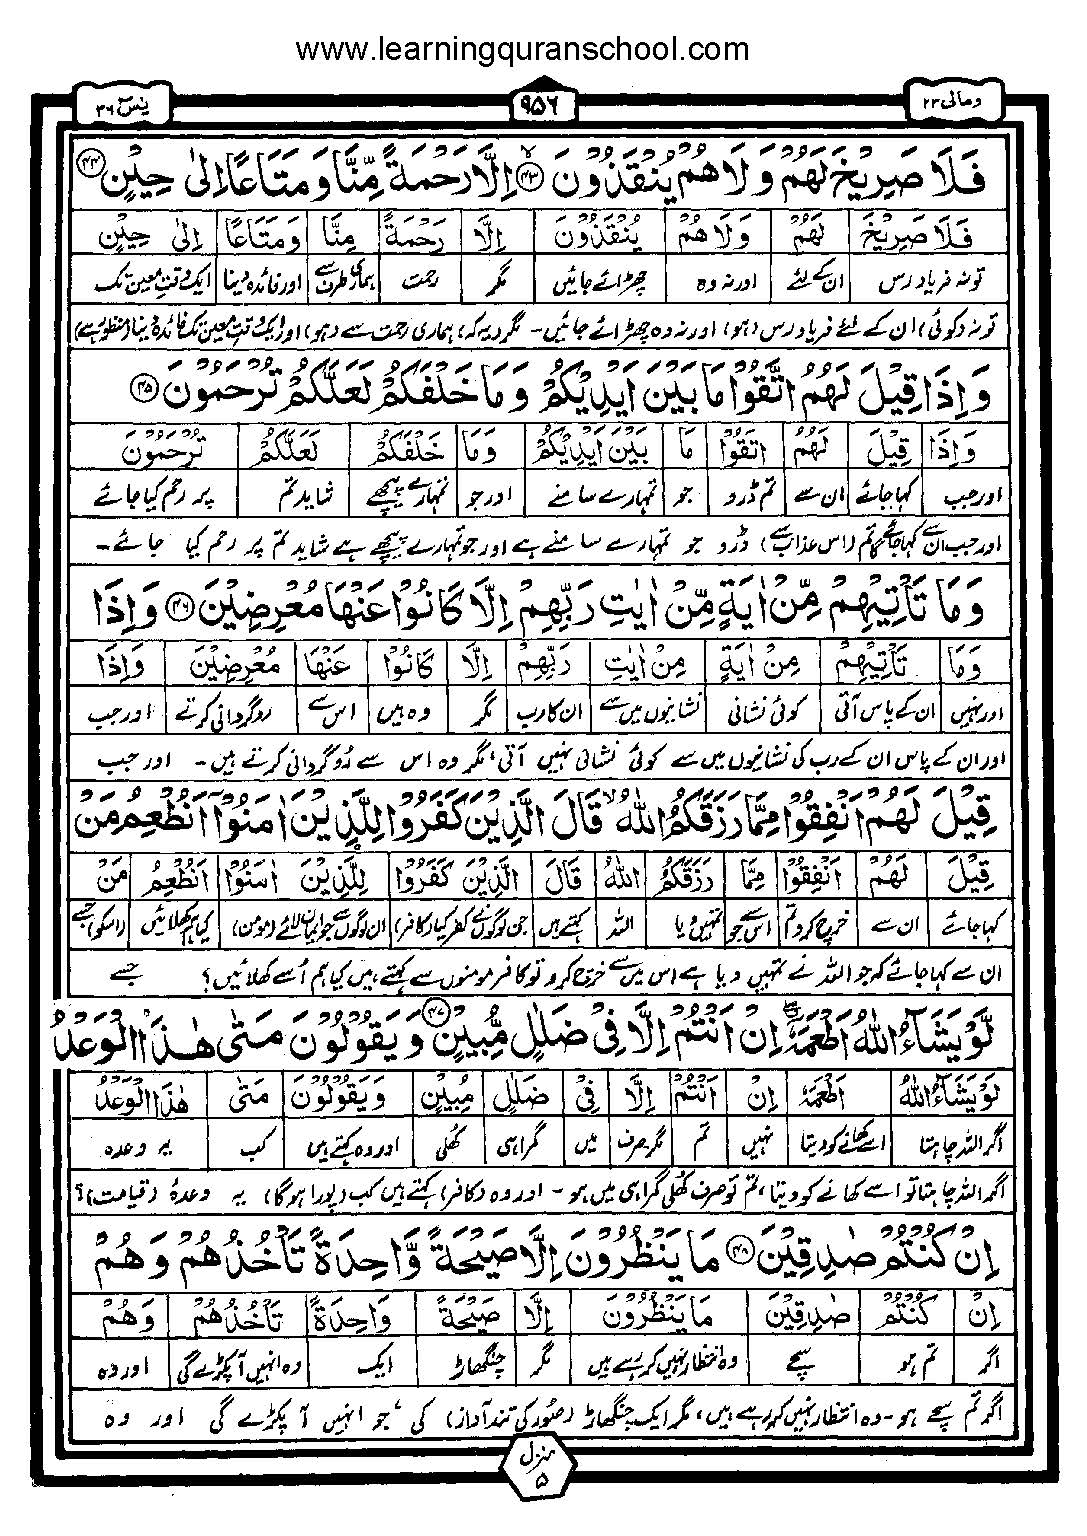 www.learningquranschool.com
ومالی ۲۳
۹۵۶
یٰسٓ ۳۶
فَلَا صَرِيْخَ لَهُمْ وَلَا هُمْ يُنْقَذُوْنَ ﴿۴۳﴾ اِلَّا رَحْمَةً مِّنَّا وَمَتَاعًا اِلٰى حِيْنٍ ﴿۴۴﴾
فَلَا صَرِيْخَ لَهُمْ وَلَا هُمْ يُنْقَذُوْنَ اِلَّا رَحْمَةً مِنَّا وَمَتَاعًا اِلٰى حِيْنٍ
تو نہ فریاد رس ان کے لئے اور نہ وہ چھڑائے جائیں مگر رحمت ہماری طرف سے اور فائدہ دینا ایک وقت معین تک
تو نہ (کوئی) ان کے لئے فریاد رس (ہو) اور نہ وہ چھڑائے جائیں۔ مگر (یہ کہ) ہماری رحمت سے (ہو) اور ایک وقت معین تک فائدہ دینا (منظور ہے)
وَاِذَا قِيْلَ لَهُمُ اتَّقُوْا مَا بَيْنَ اَيْدِيْكُمْ وَمَا خَلْفَكُمْ لَعَلَّكُمْ تُرْحَمُوْنَ ﴿۴۵﴾
وَاِذَا قِيْلَ لَهُمُ اتَّقُوْا مَا بَيْنَ اَيْدِيْكُمْ وَمَا خَلْفَكُمْ لَعَلَّكُمْ تُرْحَمُوْنَ
اور جب کہا جائے ان سے تم ڈرو جو تمہارے سامنے اور جو تمہارے پیچھے شاید تم پر رحم کیا جائے
اور جب ان سے کہا جائے کہ تم (اس عذاب سے) ڈرو جو تمہارے سامنے ہے اور جو تمہارے پیچھے ہے شاید تم پر رحم کیا جائے۔
وَمَا تَاْتِيْهِمْ مِّنْ اٰيَةٍ مِّنْ اٰيٰتِ رَبِّهِمْ اِلَّا كَانُوْا عَنْهَا مُعْرِضِيْنَ ﴿۴۶﴾ وَاِذَا
وَمَا تَاْتِيْهِمْ مِنْ اٰيَةٍ مِنْ اٰيٰتِ رَبِّهِمْ اِلَّا كَانُوْا عَنْهَا مُعْرِضِيْنَ وَاِذَا
اور نہیں ان کے پاس آتی کوئی نشانی نشانیوں میں سے ان کا رب مگر وہ ہیں اس سے روگردانی کرتے اور جب
اور ان کے پاس ان کے رب کی نشانیوں میں سے کوئی نشانی نہیں آتی، مگر وہ اس سے رُوگردانی کرتے ہیں۔ اور جب
قِيْلَ لَهُمْ اَنْفِقُوْا مِمَّا رَزَقَكُمُ اللّٰهُ ۙ قَالَ الَّذِيْنَ كَفَرُوْا لِلَّذِيْنَ اٰمَنُوْٓا اَنُطْعِمُ مَنْ
قِيْلَ لَهُمْ اَنْفِقُوْا مِمَّا رَزَقَكُمُ اللّٰهُ قَالَ الَّذِيْنَ كَفَرُوْا لِلَّذِيْنَ اٰمَنُوْا اَنُطْعِمُ مَنْ
کہا جائے ان سے خرچ کرو تم اس سے جو تمہیں دیا اللہ کہتے ہیں جن لوگوں نے کفر کیا (کافر) ان لوگوں سے جو ایمان لائے (مومن) کیا ہم کھلائیں (اس کو) جسے
ان سے کہا جائے کہ جو اللہ نے تمہیں دیا ہے اس میں سے خرچ کرو تو کافر مومنوں سے کہتے ہیں کیا ہم اُسے کھلائیں؟ جسے
لَّوْ يَشَآءُ اللّٰهُ اَطْعَمَهٗٓ ۖ اِنْ اَنْتُمْ اِلَّا فِيْ ضَلٰلٍ مُّبِيْنٍ ﴿۴۷﴾ وَيَقُوْلُوْنَ مَتٰى هٰذَا الْوَعْدُ
لَوْ يَشَآءُ اللّٰهُ اَطْعَمَهٗ اِنْ اَنْتُمْ اِلَّا فِيْ ضَلٰلٍ مُبِيْنٍ وَيَقُوْلُوْنَ مَتٰى هٰذَا الْوَعْدُ
اگر اللہ چاہتا اسے کھانے کو دیتا نہیں تم مگر صرف میں گمراہی کھلی اور وہ کہتے ہیں کب یہ وعدہ
اگر اللہ چاہتا تو اسے کھانے کو دیتا، تم تو صرف کھلی گمراہی میں ہو۔ اور وہ (کافر) کہتے ہیں کب (پورا ہوگا) یہ وعدۂ (قیامت)؟
اِنْ كُنْتُمْ صٰدِقِيْنَ ﴿۴۸﴾ مَا يَنْظُرُوْنَ اِلَّا صَيْحَةً وَّاحِدَةً تَاْخُذُهُمْ وَهُمْ
اِنْ كُنْتُمْ صٰدِقِيْنَ مَا يَنْظُرُوْنَ اِلَّا صَيْحَةً وَاحِدَةً تَاْخُذُهُمْ وَهُمْ
اگر تم ہو سچے وہ انتظار نہیں کر رہے ہیں مگر چنگھاڑ ایک وہ انہیں آ پکڑے گی اور وہ
اگر تم سچے ہو۔ وہ انتظار نہیں کر رہے ہیں، مگر ایک چنگھاڑ (صُور کی تند آواز) کی، جو انہیں آ پکڑے گی اور وہ
منزل
۵